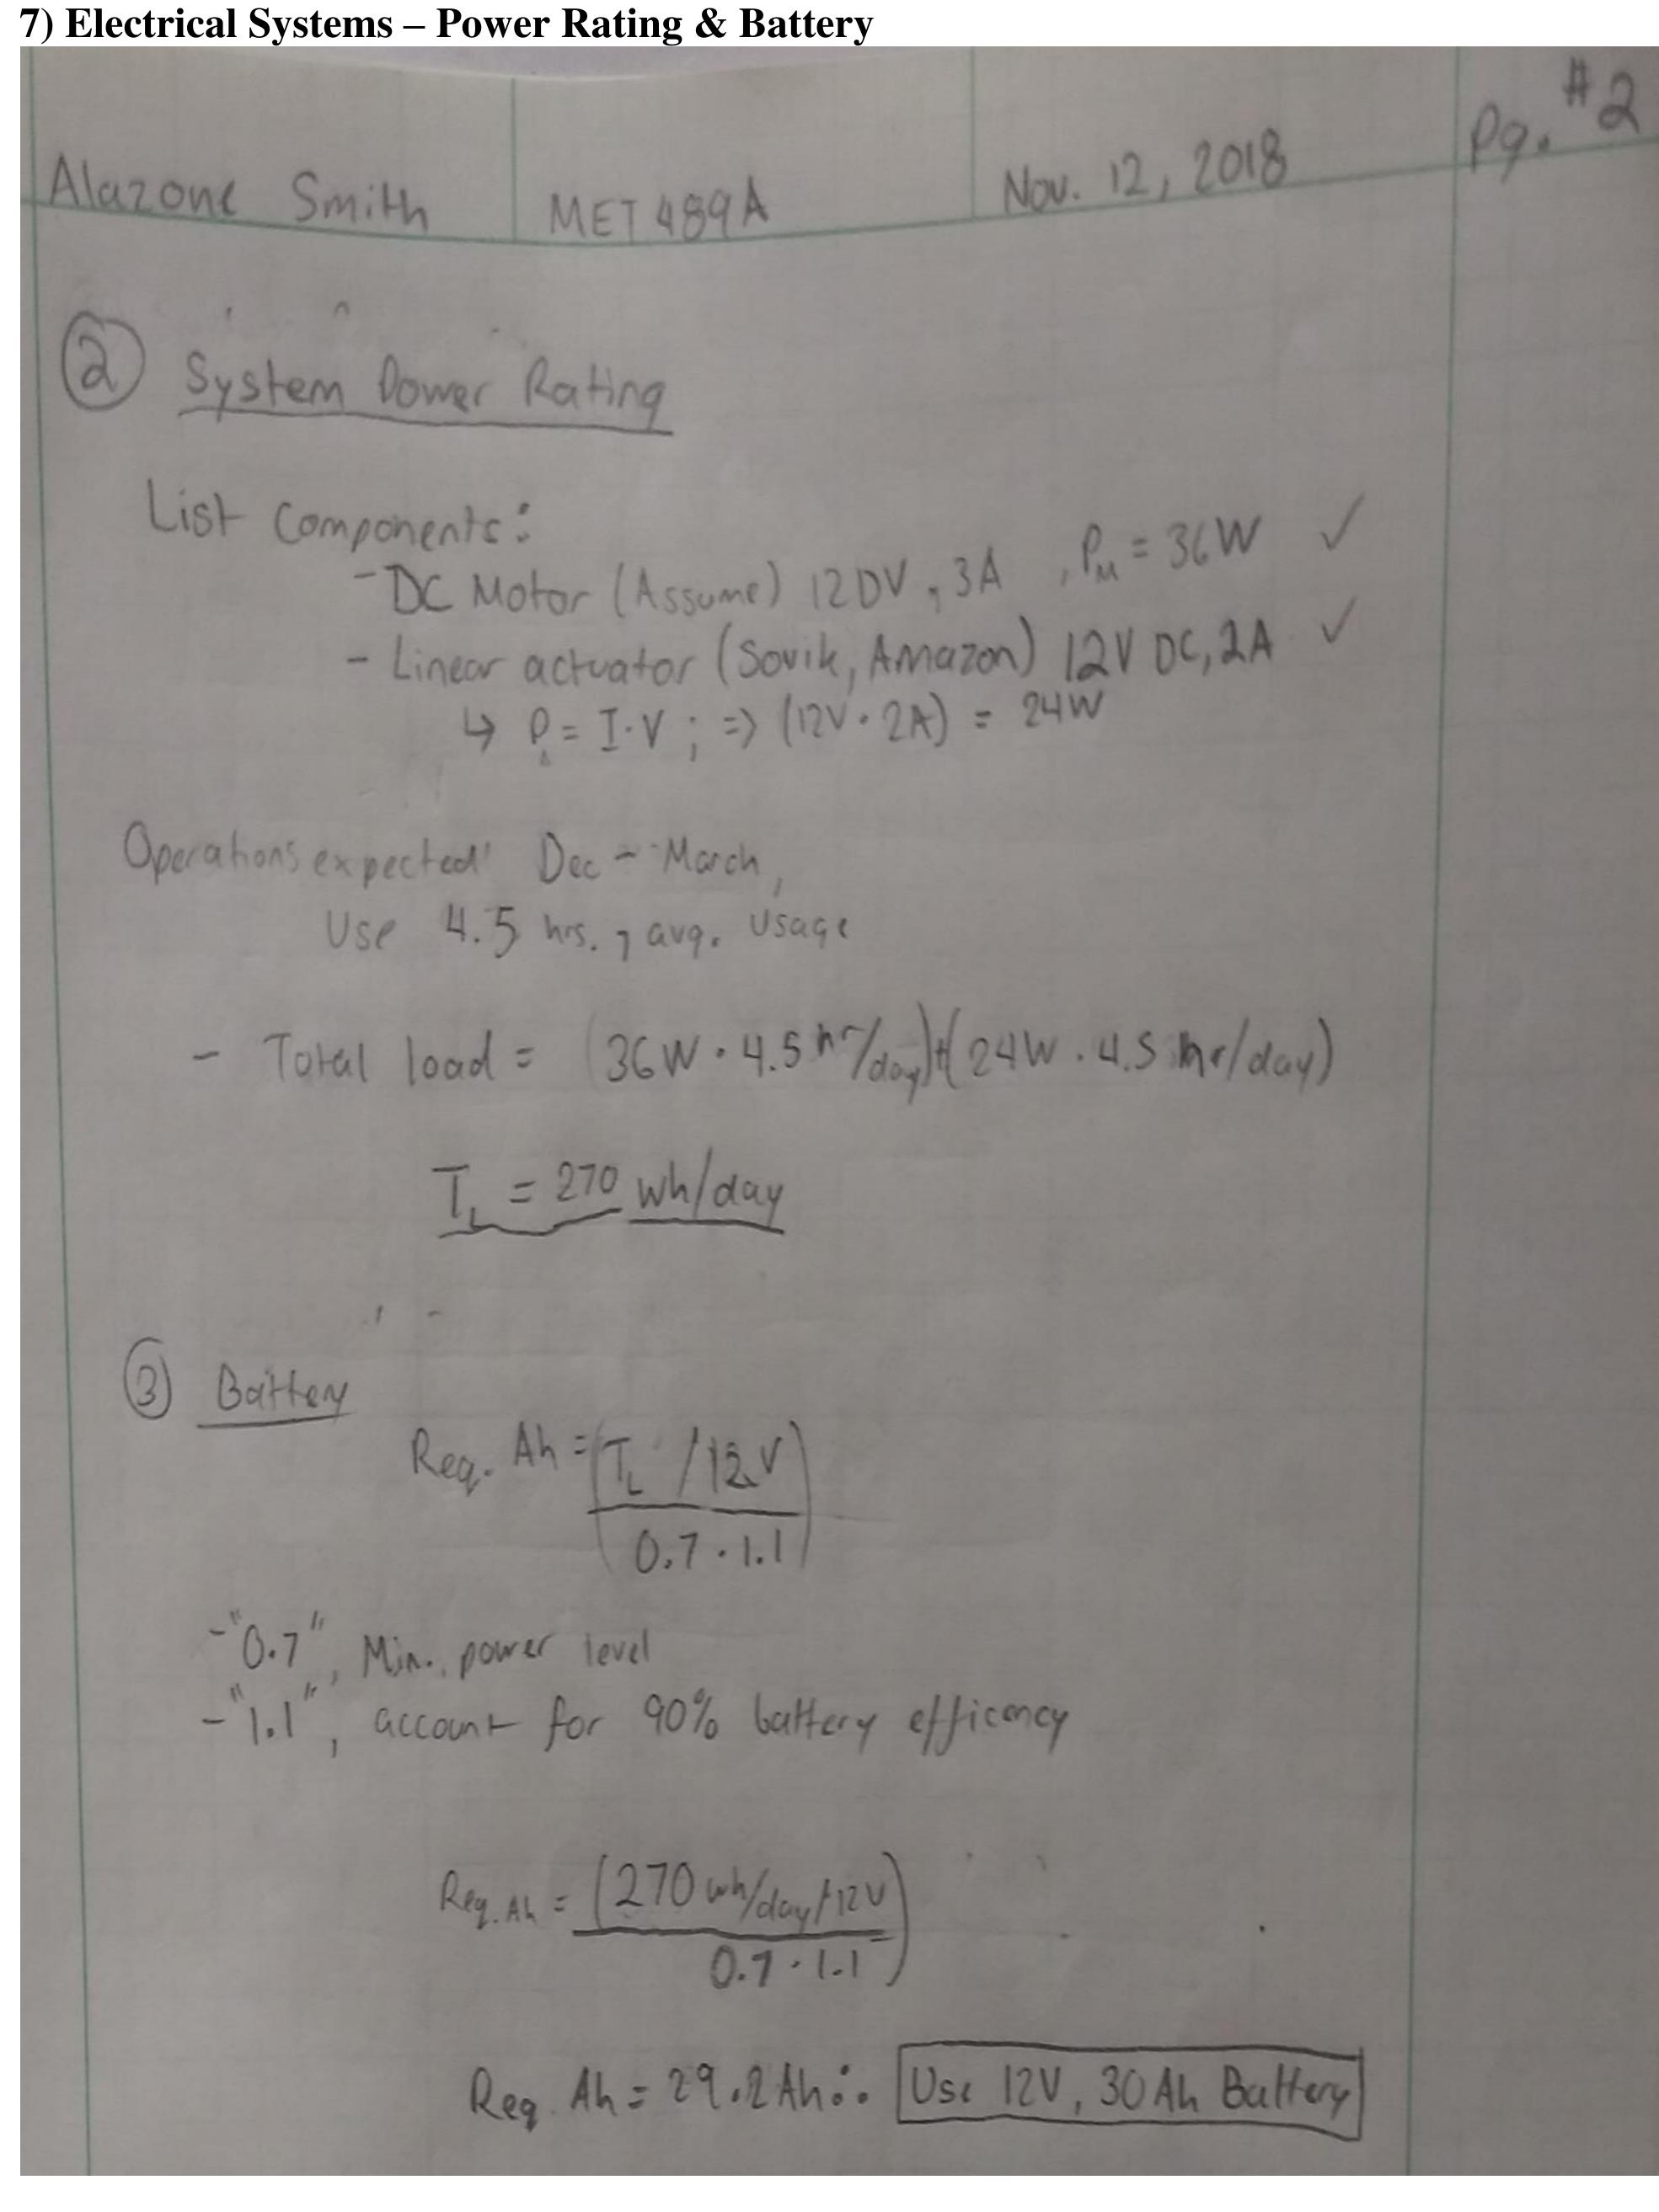 7) Electrical Systems – Power Rating & Battery
Alazone Smith MET 489A Nov. 12, 2018 Pg. #2
② System Power Rating
List Components:
- DC Motor (Assume) 12DV, 3A , PM = 36W ✓
- Linear actuator (Sovik, Amazon) 12V DC, 2A ✓
↳ P = I·V ; => (12V · 2A) = 24W
Operations expected: Dec - March,
Use 4.5 hrs., avg. usage
- Total load = (36W · 4.5 hr/day)+(24W · 4.5 hr/day)
TL = 270 wh/day
③ Battery
Req. Ah = (TL / 12V)
0.7 · 1.1
- "0.7", Min. power level
- "1.1", account for 90% battery efficency
Req. Ah = (270 wh/day / 12V)
0.7 · 1.1
Req. Ah = 29.2 Ah ∴ Use 12V, 30 Ah Battery